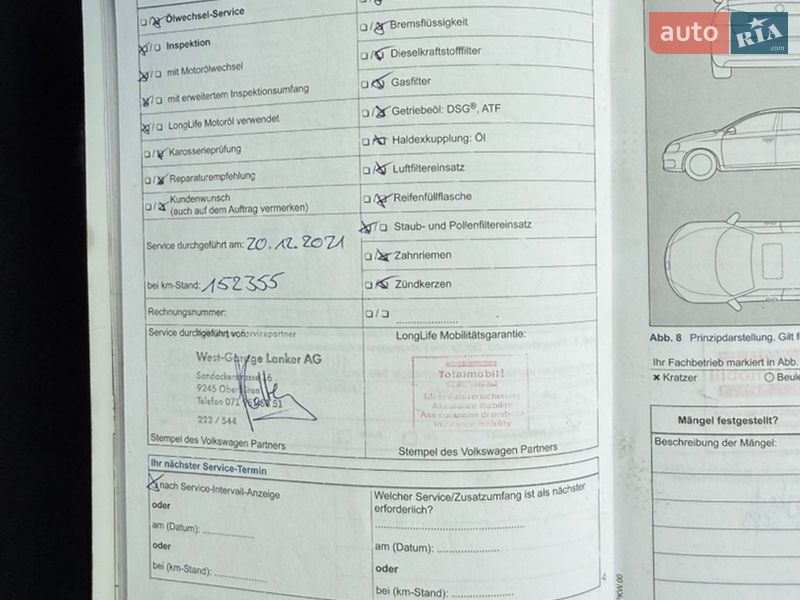 auto RIA .com
Ölwechsel-Service
Inspektion
mit Motorölwechsel
mit erweitertem Inspektionsumfang
LongLife Motoröl verwendet
Karosserieprüfung
Reparaturempfehlung
Kundenwunsch
(auch auf dem Auftrag vermerken)
Service durchgeführt am: 20.12.2021
bei km-Stand: 152355
Rechnungsnummer:
Service durchgeführt von:
Servicepartner
West-Garage Lanker AG
9245 Oberbüren
Telefon 071
223 / 544
Stempel des Volkswagen Partners
Bremsflüssigkeit
Dieselkraftstofffilter
Gasfilter
Getriebeöl: DSG®, ATF
Haldexkupplung: Öl
Luftfiltereinsatz
Reifenfüllflasche
Staub- und Pollenfiltereinsatz
Zahnriemen
Zündkerzen
LongLife Mobilitätsgarantie:
Totalmobil!
Mobilitätsversicherung
Assurance mobilité
Assicurazione di mobilità
Insurance mobility
Stempel des Volkswagen Partners
Ihr nächster Service-Termin
nach Service-Intervall-Anzeige
oder
am (Datum):
oder
bei (km-Stand):
Welcher Service/Zusatzumfang ist als nächster
erforderlich?
am (Datum):
oder
bei (km-Stand):
Abb. 8 Prinzipdarstellung. Gilt f
Ihr Fachbetrieb markiert in Abb.
× Kratzer
Beule
Mängel festgestellt?
Beschreibung der Mängel: